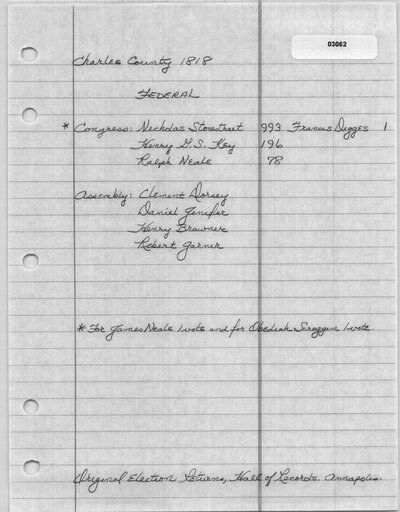 03062
Charles County 1818
FEDERAL
* Congress: Nicholas Stonestreet 993 Francis Digges 1
Henry H.S. Key 196
Ralph Neale 78
Assembly: Clement Dorsey
Daniel Jenifer
Henry Brawner
Robert Garner
* For James Neale 1 vote and for Obediah Scroggin 1 vote
Original Election Returns, Hall of Records, Annapolis.